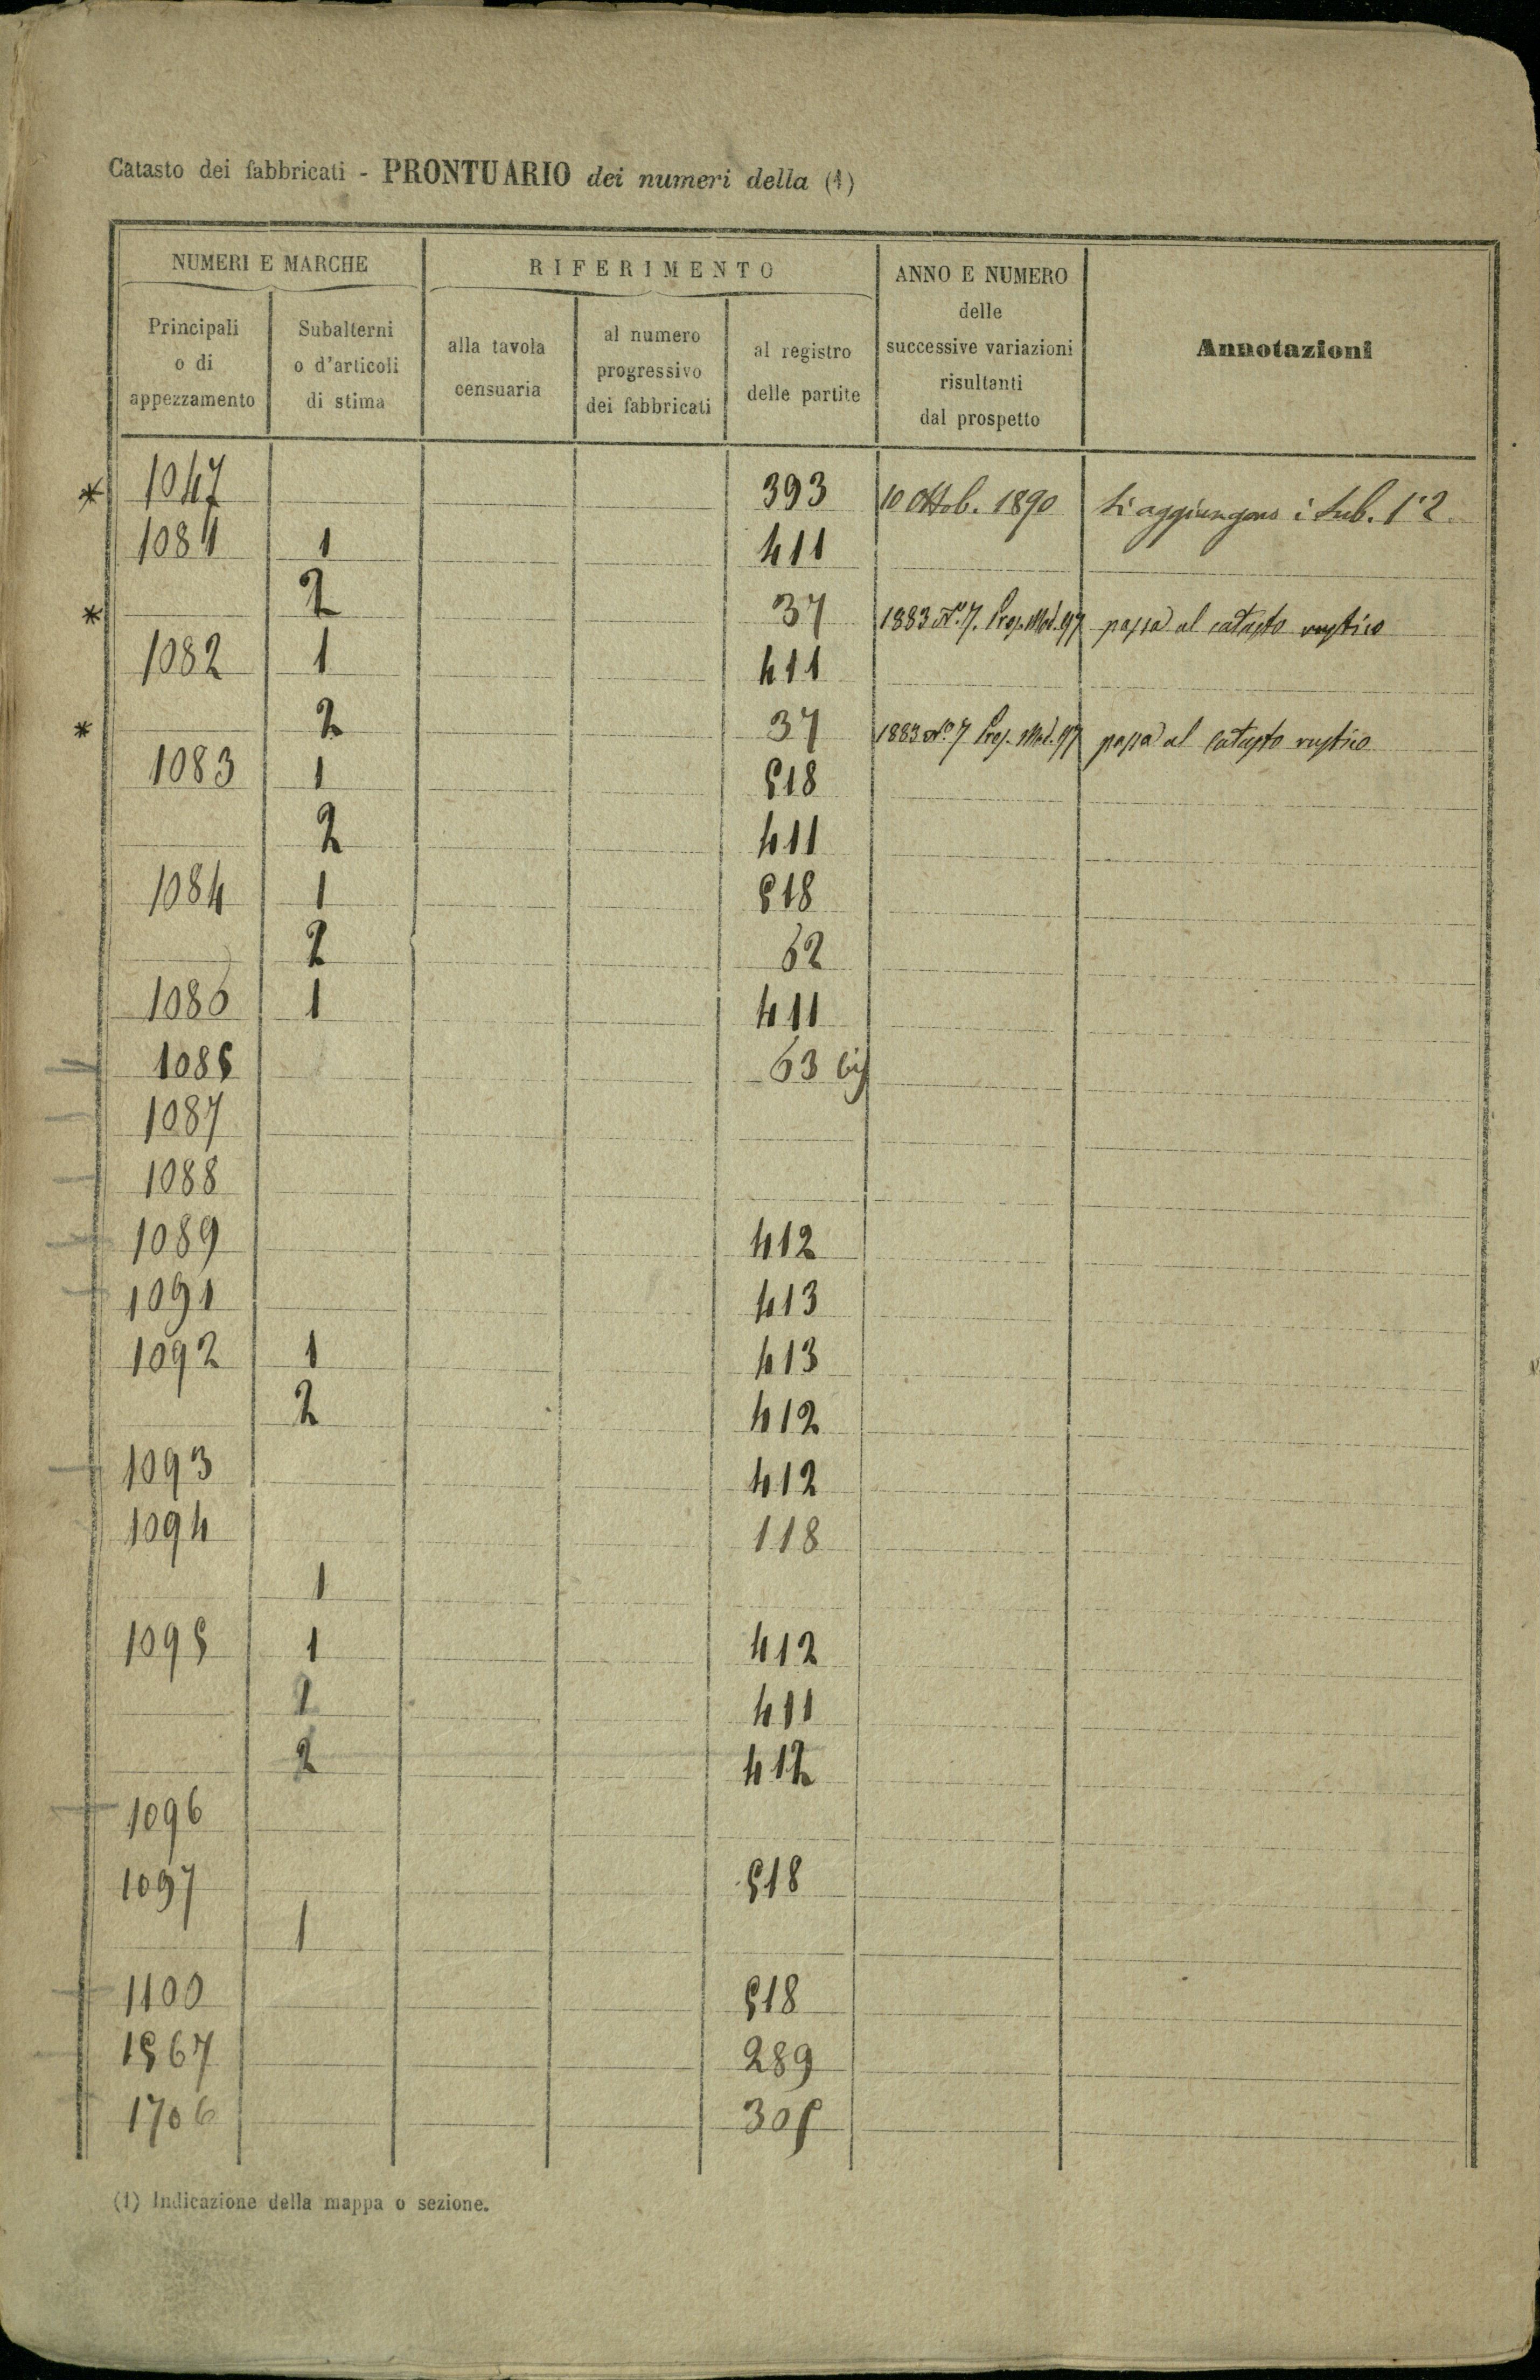 Catasto dei fabbricati - PRONTUARIO dei numeri della (1)
NUMERI E MARCHE
RIFERIMENTO
ANNO E NUMERO
delle
successive variazioni
risultanti
dal prospetto
Annotazioni
Principali
o di
appezzamento
Subalterni
o d'articoli
di stima
alla tavola
censuaria
al numero
progressivo
dei fabbricati
al registro
delle partite
* 1047 393 10 Ottob. 1890 Si aggiungono i Sub. 1 e 2
1081 1 411
* 2 37 1883 N° 7. Prosp. Mod. 97 passa al catasto rustico
1082 1 411
* 2 37 1883 N° 7 Prosp. Mod. 97 passa al catasto rustico
1083 1 518
2 411
1084 1 518
2 62
1086 1 411
1085 63 bis
1087
1088
1089 412
1091 413
1092 1 413
2 412
1093 412
1094 118
1
1095 1 412
1 411
2 412
1096
1097 518
1
1100 518
1567 289
1706 305
(1) Indicazione della mappa o sezione.